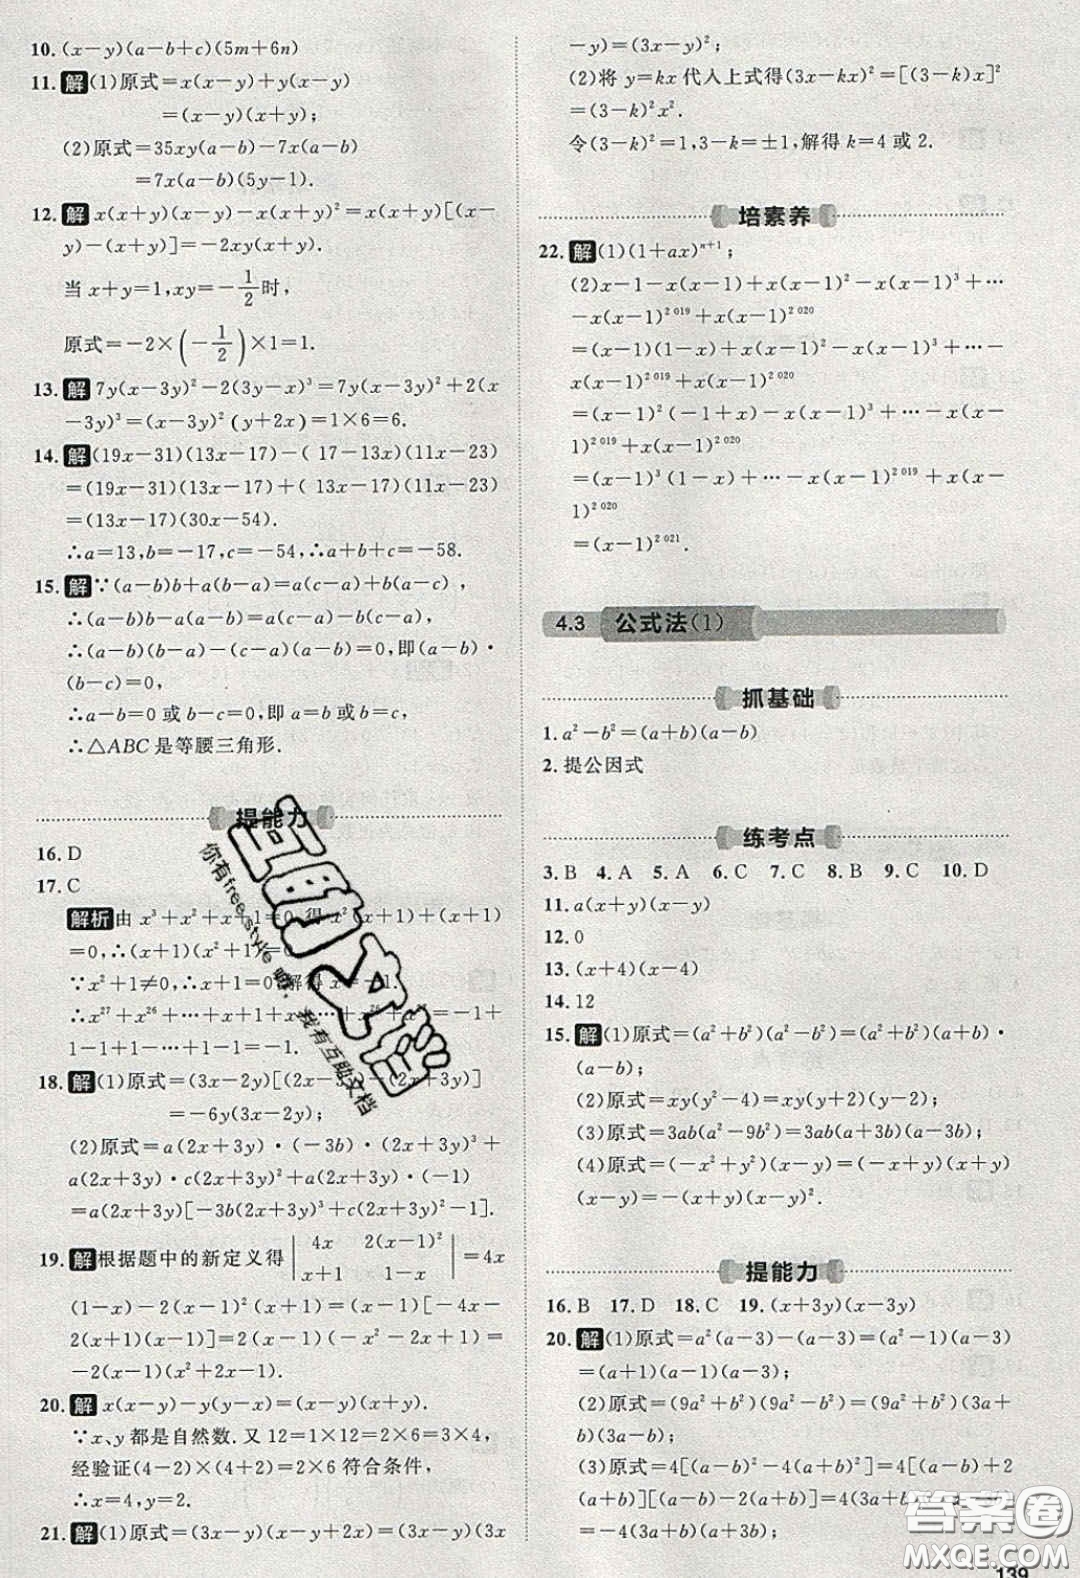 10. (x－y)(a－b＋c)(5m＋6n)
11. 解(1)原式＝x(x－y)＋y(x－y)
＝(x－y)(x＋y)；
(2)原式＝35xy(a－b)－7x(a－b)
＝7x(a－b)(5y－1).
12. 解 x(x＋y)(x－y)－x(x＋y)²＝x(x＋y)[(x－
y)－(x＋y)]＝－2xy(x＋y).
当 x＋y＝1,xy＝－1/2时,
原式＝－2×(－1/2)×1＝1.
13. 解 7y(x－3y)²－2(3y－x)³＝7y(x－3y)²＋2(x
－3y)³＝(x－3y)²(y＋2x)＝1×6＝6.
14. 解(19x－31)(13x－17)－(17－13x)(11x－23)
＝(19x－31)(13x－17)＋(13x－17)(11x－23)
＝(13x－17)(30x－54).
∴a＝13,b＝－17,c＝－54,∴a＋b＋c＝－58.
15. 解∵(a－b)b＋a(b－a)＝a(c－a)＋b(a－c)，
∴(a－b)b－a(a－b)＝a(c－a)－b(c－a)，
∴(a－b)(b－a)－(c－a)(a－b)＝0,即(a－b)·
(b－c)＝0,
∴a－b＝0 或 b－c＝0,即 a＝b 或 b＝c,
∴△ABC 是等腰三角形.
提能力
16. D
17. C
解析 由 x³＋x²＋x＋1＝0,得 x²(x＋1)＋(x＋1)
＝0,∴(x＋1)(x²＋1)＝0.
∵x²＋1≠0,解得 x＝－1.
∴x²⁷＋x²⁶＋…＋x＋1＋x＋…＋x²⁶＋x²⁷＝－1＋
1－1＋1－…＋1－1＝－1.
18. 解(1)原式＝(3x－2y)[(2x－3y)－(2x＋3y)]
＝－6y(3x－2y)；
(2)原式＝a(2x＋3y)·(－3b)·(2x＋3y)³＋
a(2x＋3y)·c(2x＋3y)²＋a(2x＋3y)·(－1)
＝a(2x＋3y)[－3b(2x＋3y)³＋c(2x＋3y)²－1].
19. 解 根据题中的新定义得 |4x 2(x－1)²; x＋1 1－x|＝4x
(1－x)－2(x－1)²(x＋1)＝(x－1)[－4x－
2(x＋1)(x－1)]＝2(x－1)(－x²－2x＋1)＝
－2(x－1)(x²＋2x－1).
20. 解 x(x－y)－y(y－x)＝(x－y)(x＋y).
∵x、y 都是自然数.又 12＝1×12＝2×6＝3×4,
经验证(4－2)×(4＋2)＝2×6 符合条件,
∴x＝4,y＝2.
21. 解(1)原式＝(3x－y)(x－y＋2x)＝(3x－y)(3x
－y)＝(3x－y)²；
(2)将 y＝kx 代入上式得(3x－kx)²＝[(3－k)x]²
＝(3－k)²x².
令(3－k)²＝1,3－k＝±1,解得 k＝4 或 2.
培素养
22. 解(1)(1＋ax)ⁿ⁺¹；
(2)x－1－x(x－1)＋x(x－1)²－x(x－1)³＋…
－x(x－1)²⁰¹⁹＋x(x－1)²⁰²⁰
＝(x－1)(1－x)＋x(x－1)²－x(x－1)³＋…－
x(x－1)²⁰¹⁹＋x(x－1)²⁰²⁰
＝(x－1)²(－1＋x)－x(x－1)³＋…－x(x－
1)²⁰¹⁹＋x(x－1)²⁰²⁰
＝(x－1)³(x－1)＋…－x(x－1)²⁰¹⁹＋x(x－
1)²⁰²⁰
＝(x－1)²⁰²¹.
4.3 公式法(1)
抓基础
1. a²－b²＝(a＋b)(a－b)
2. 提公因式
练考点
3. B 4. A 5. A 6. C 7. C 8. B 9. C 10. D
11. a(x＋y)(x－y)
12. 0
13. (x＋4)(x－4)
14. 12
15. 解(1)原式＝(a²＋b²)(a²－b²)＝(a²＋b²)(a＋b)·
(a－b)；
(2)原式＝xy(y²－4)＝xy(y＋2)(y－2)；
(3)原式＝3ab(a²－9b²)＝3ab(a＋3b)(a－3b)；
(4)原式＝(－x²＋y²)(x－y)＝(－x＋y)(x＋y)
(x－y)＝－(x＋y)(x－y)².
提能力
16. B 17. D 18. C 19. (x＋3y)(x－3y)
20. 解(1)原式＝a²(a－3)－(a－3)＝(a²－1)(a－3)
＝(a＋1)(a－1)(a－3)；
(2)原式＝(9a²＋b²)(9a²－b²)＝(9a²＋b²)(3a＋
b)(3a－b)；
(3)原式＝4[(a－b)²－4(a＋b)²]＝4[(a－b)＋2
(a＋b)][(a－b)－2(a＋b)]＝4(3a＋b)(－a－3b)
＝－4(3a＋b)(a＋3b)；
139
互助文档
你有free style 吗，我有互助文档
答案圈
MXQE.COM